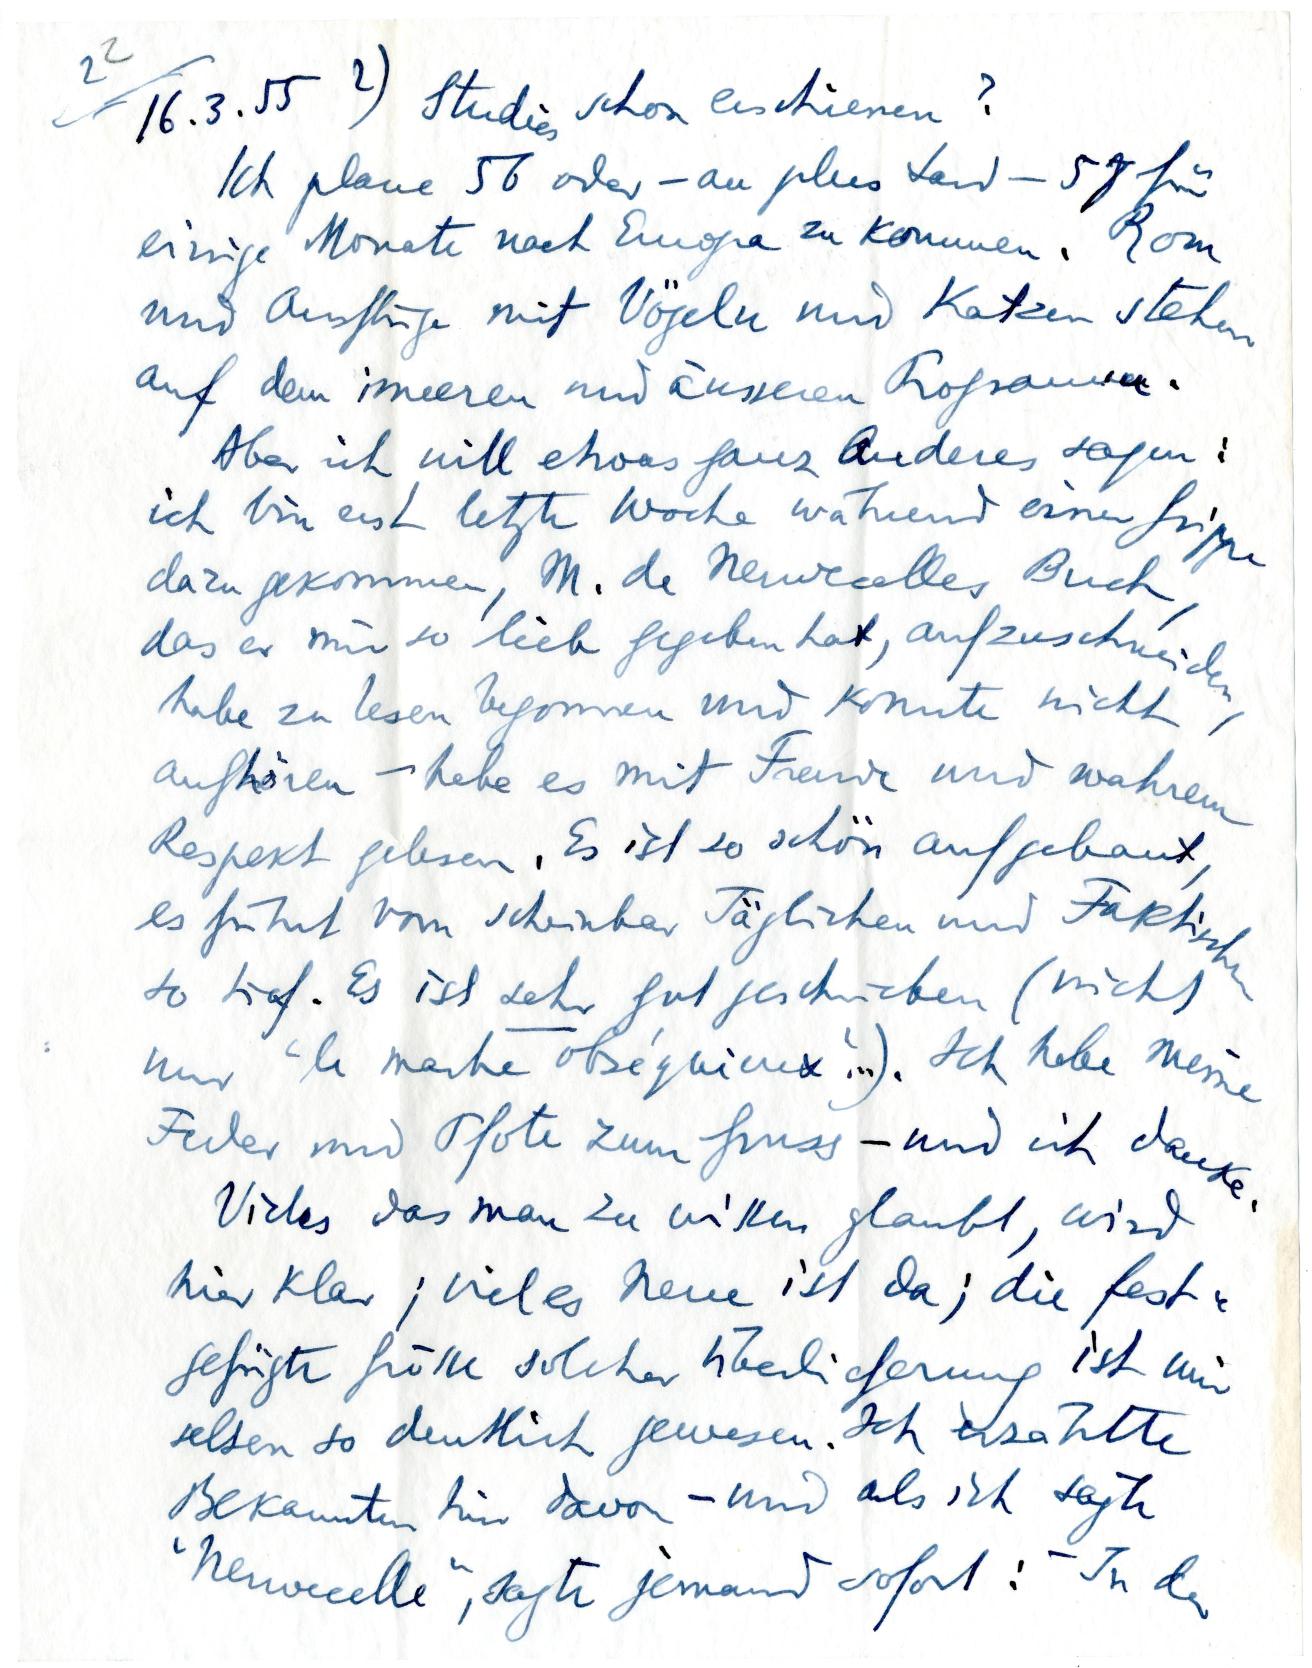 22
16.3.55 2) Studies schon erschienen?
Ich plane 56 oder – au plus tard – 57 für
einige Monate nach Europa zu kommen. Rom
und Ausflüge mit Vögeln und Katzen stehen
auf dem inneren und äusseren Programm.
Aber ich will etwas ganz Anderes sagen:
ich bin erst letzte Woche während einer Grippe
dazu gekommen, M. de Nervecelles Buch,
das er mir so lieb gegeben hat, aufzuschneiden,
habe zu lesen begonnen und konnte nicht
aufhören – habe es mit Freude und wahrem
Respekt gelesen. Es ist so schön aufgebaut,
es führt vom scheinbar Täglichen und Faktischen
so tief. Es ist sehr gut geschrieben (nicht
nur "le maître obséquieux"...). Ich hebe meine
Feder und Pfote zum Gruss – und ich danke.
Vieles das man zu wissen glaubt, wird
hier klar; vieles Neue ist da; die fest-
gefügte Grösse solcher Überlieferung ist mir
selten so deutlich gewesen. Ich erzählte
Bekannten hier davon – und als ich sagte
"Nervecelle", sagte jemand sofort: – In der